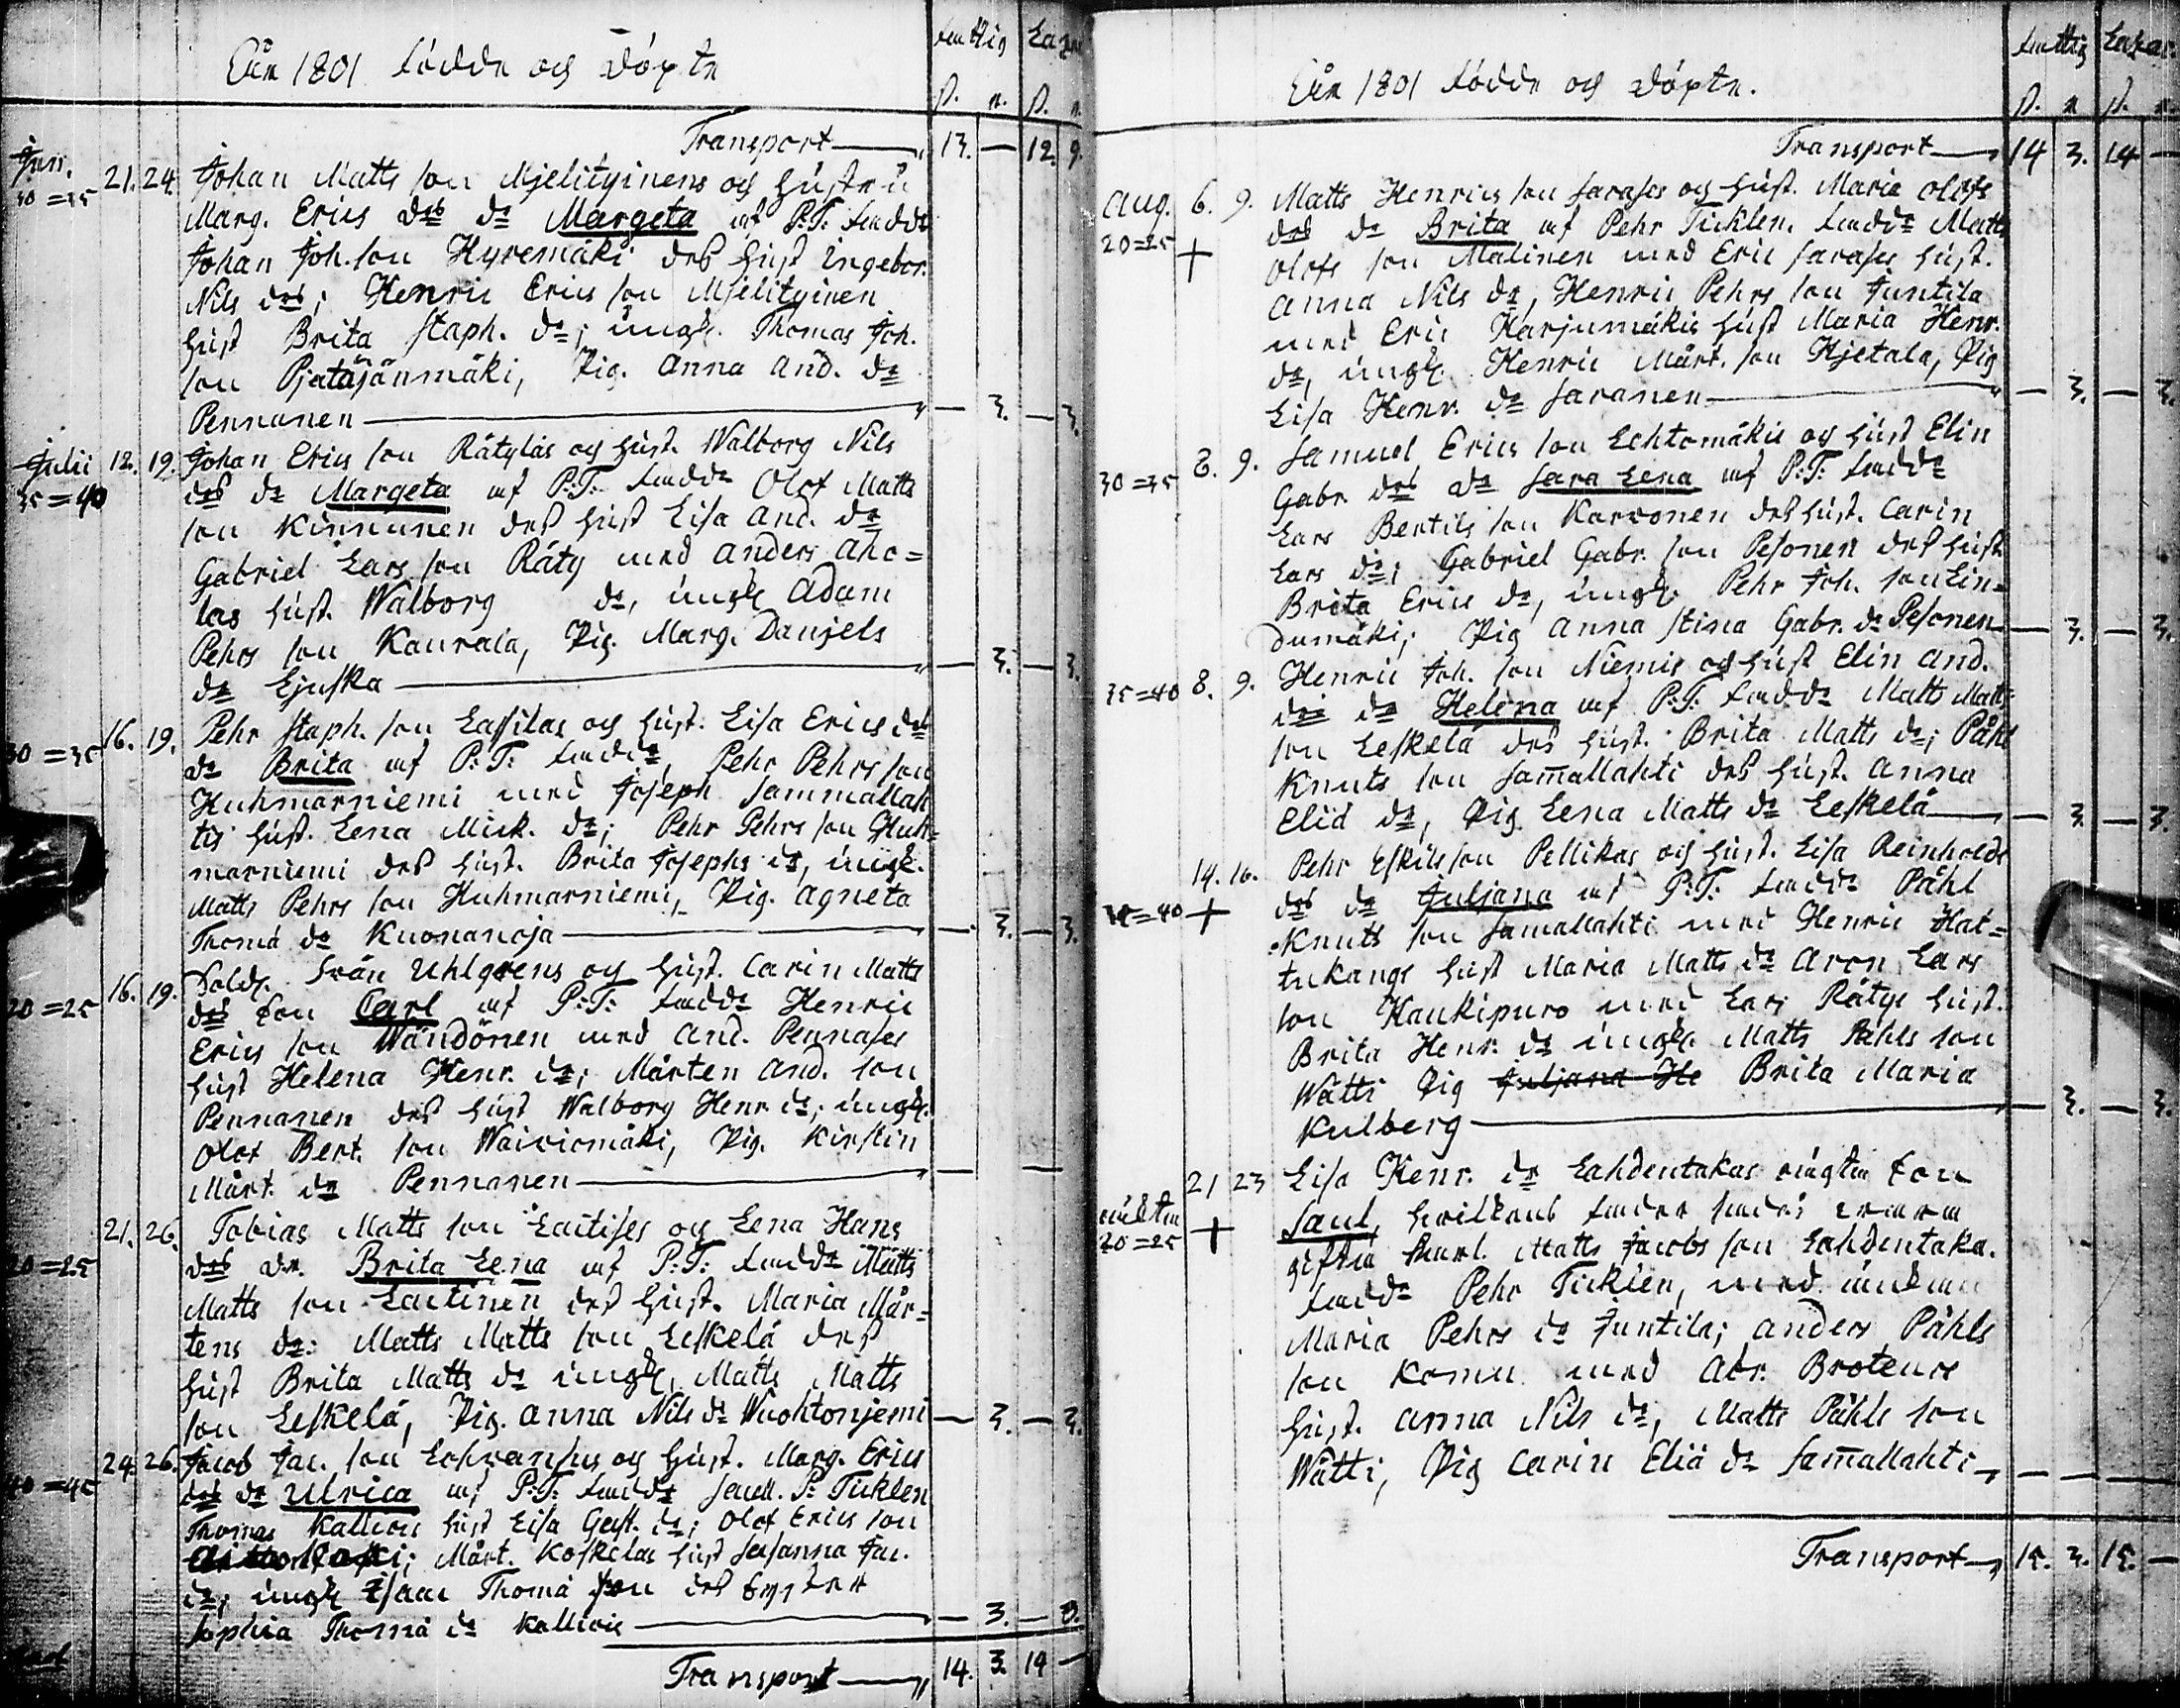 Åhr 1801 födde och döpte
fattig Lazar.
ß. r. ß. r.
Transport 13. — 12. 9.
Juni. 21. 24. Johan Matts son Mjelityinens och hustru
30=35 Marg. Erics dr Margeta af P:T: faddr
Johan Joh. son Hyremäki dess hust Ingebor.
Nils dr; Henric Erics son Mjelityinen
hust Brita Staph. dr; ungk. Thomas Joh.
son Pjatäjänmäki, Pig. Anna And. dr
Pennanen — 3. — 3.
Julii 12. 19. Johan Erics son Rätyläs och hust. Walborg Nils
35=40 dr Margeta af P:T: faddr Olof Matts
son Kinnunen dess hust Lisa And. dr
Gabriel Lars son Räty med Anders Aho=
las hust. Walborg dr, ungk Adam
Pehrs son Kaurala, Pig. Marg. Danjels
dr Ljuska — 3. — 3.
16. 19. Pehr Staph. son Lassilas och hust. Lisa Erics
30=35 dr Brita af P:T: faddr, Pehr Pehrs son
Huhmarniemi med Joseph Sammallah
tis hust. Lena Mick. dr; Pehr Pehrs son Huh=
marniemi dess hust. Brita Josephs dr, ungk.
Matts Pehrs son Huhmarniemi, Pig. Agneta
Thomä dr Kuonanoja — 3. — 3.
16. 19. Sold. Frän Uhlgrens och hust. Carin Matts
20=25 son Carl af P:T: faddr Henric
Erics son Wändönen med And. Pennases
hust Helena Henr. dr; Mårten And. son
Pennanen dess hust Walborg Henr. dr; ungk.
Olof Bert. son Waiviomäki, Pig. Kirstin
Mårt. dr Pennanen — —
21. 26. Tobias Matts son Laitises och Lena Hans
20=25 dr Brita Lena af P:T: faddr Matts
Matts son Laitinen dess hust. Maria Mår=
tens dr: Matts Matts son Leskelä dess
hust Brita Matts dr ungk, Matts Matts
son Leskelä, Pig. Anna Nils dr Wuohtonjemi — 3. — 3.
24. 26. Jacob Jac. son och hust. Marg. Erics
40=45 dr Ulrica af P:T: faddr P: Ticklen
Thomas Kallioi hust Lisa Gust. dr; Olof Erics son
Mårt. Koskelas hust Susanna Jac.
dr; ungk Isaac Thomä son dess syster
Sophia Thomä dr Kallioi — 3. — 3.
Transport 14. 3. 14 —
Åhr 1801 födde och döpte.
fattig Lazar.
ß. r ß. r.
Transport 14 3. 14 —
Aug. 6. 9. Matts Henrics son Sarases och hust. Maria Olofs
20=25 + dr Brita af Pehr Ticklen. faddr Matts
Olofs son Malinen med Eric Sarases hust.
Anna Nils dr, Henric Pehrs son Juntila
med Eric Karjumäkis hust Maria Henr.
dr, ungk. Henric Mårt. son Hjetala, Pig
Lisa Henr. dr Saranen — 3. — 3.
8. 9. Samuel Erics son Lehtomäkis och hust Elin
30=35 Gabr. dr Sara Lena af P:T: faddr
Lars Bertils son Karvonen dess hust. Carin
Lars dr; Gabriel Gabr. son Pesonen dess hust
Brita Erics dr, ungk. Pehr Joh. son Lin=
dumäki; Pig Anna Stina Gabr. dr Pesonen — 3. — 3.
35=40 8. 9. Henric Joh. son Niemis och hust Elin And.
dr Helena af P:T: faddr Matts Matts
son Leskelä dess hust. Brita Matts dr; Påhl
Knuts son Samallahti dess hust. Anna
Eliä dr, Pig Lena Matts dr Leskelä — 3. — 3.
14. 16. Pehr Eskils son Pellikas och hust. Lisa Reinholds
+ dr Juljana af P:T: faddr Påhl
Knuts son Samallahti med Henric Hat=
tukangs hust Maria Matts dr Aron Lars
son Haukipuro med Lars Rätys hust.
Brita Henr. dr ungk. Matts Påhls son
Wätti Pig Juljana He Brita Maria
Kulberg — 3. — 3.
21 23 Lisa Henr. dr Lahdentakas oägta son
20=25 + Saul, hvilkens fader
Matts Jacobs son Lahdentaka.
faddr Pehr Ticklen, med enkan
Maria Pehrs dr Juntila; Anders Påhls
son Komu med Abr. Broteurs
hust. Anna Nils dr, Matts Påhls son
Wätti, Pig Carin Eliä dr Samallahti — — — —
Transport 15. 3. 15. —